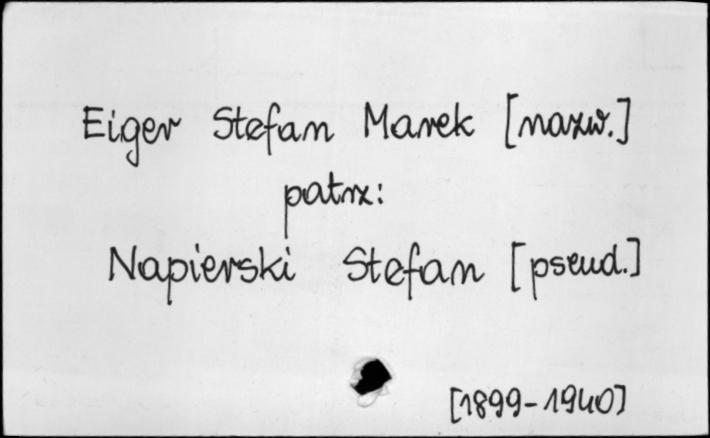 Eiger Stefan Marek [nazw.]
patrz:
Napierski Stefan [pseud.]
[1899-1940]